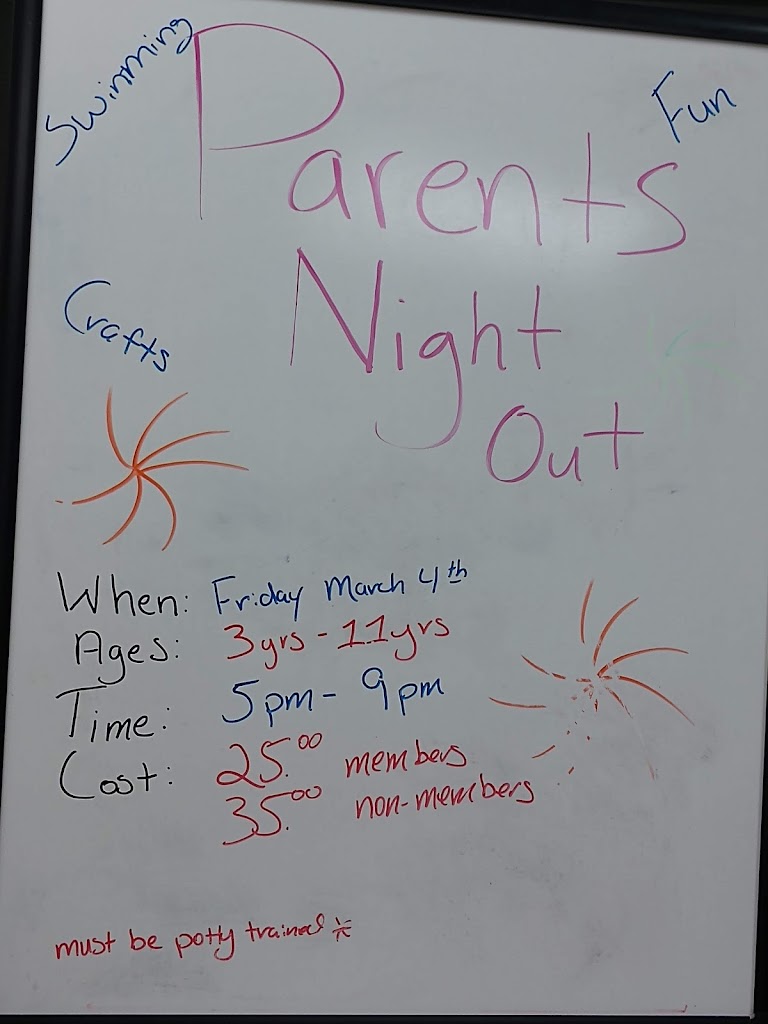 Swimming
Fun
Parents
Night
Out
Crafts
When: Friday March 4th
Ages: 3yrs - 11yrs
Time: 5pm - 9pm
Cost: 25.00 members
35.00 non-members
must be potty trained *